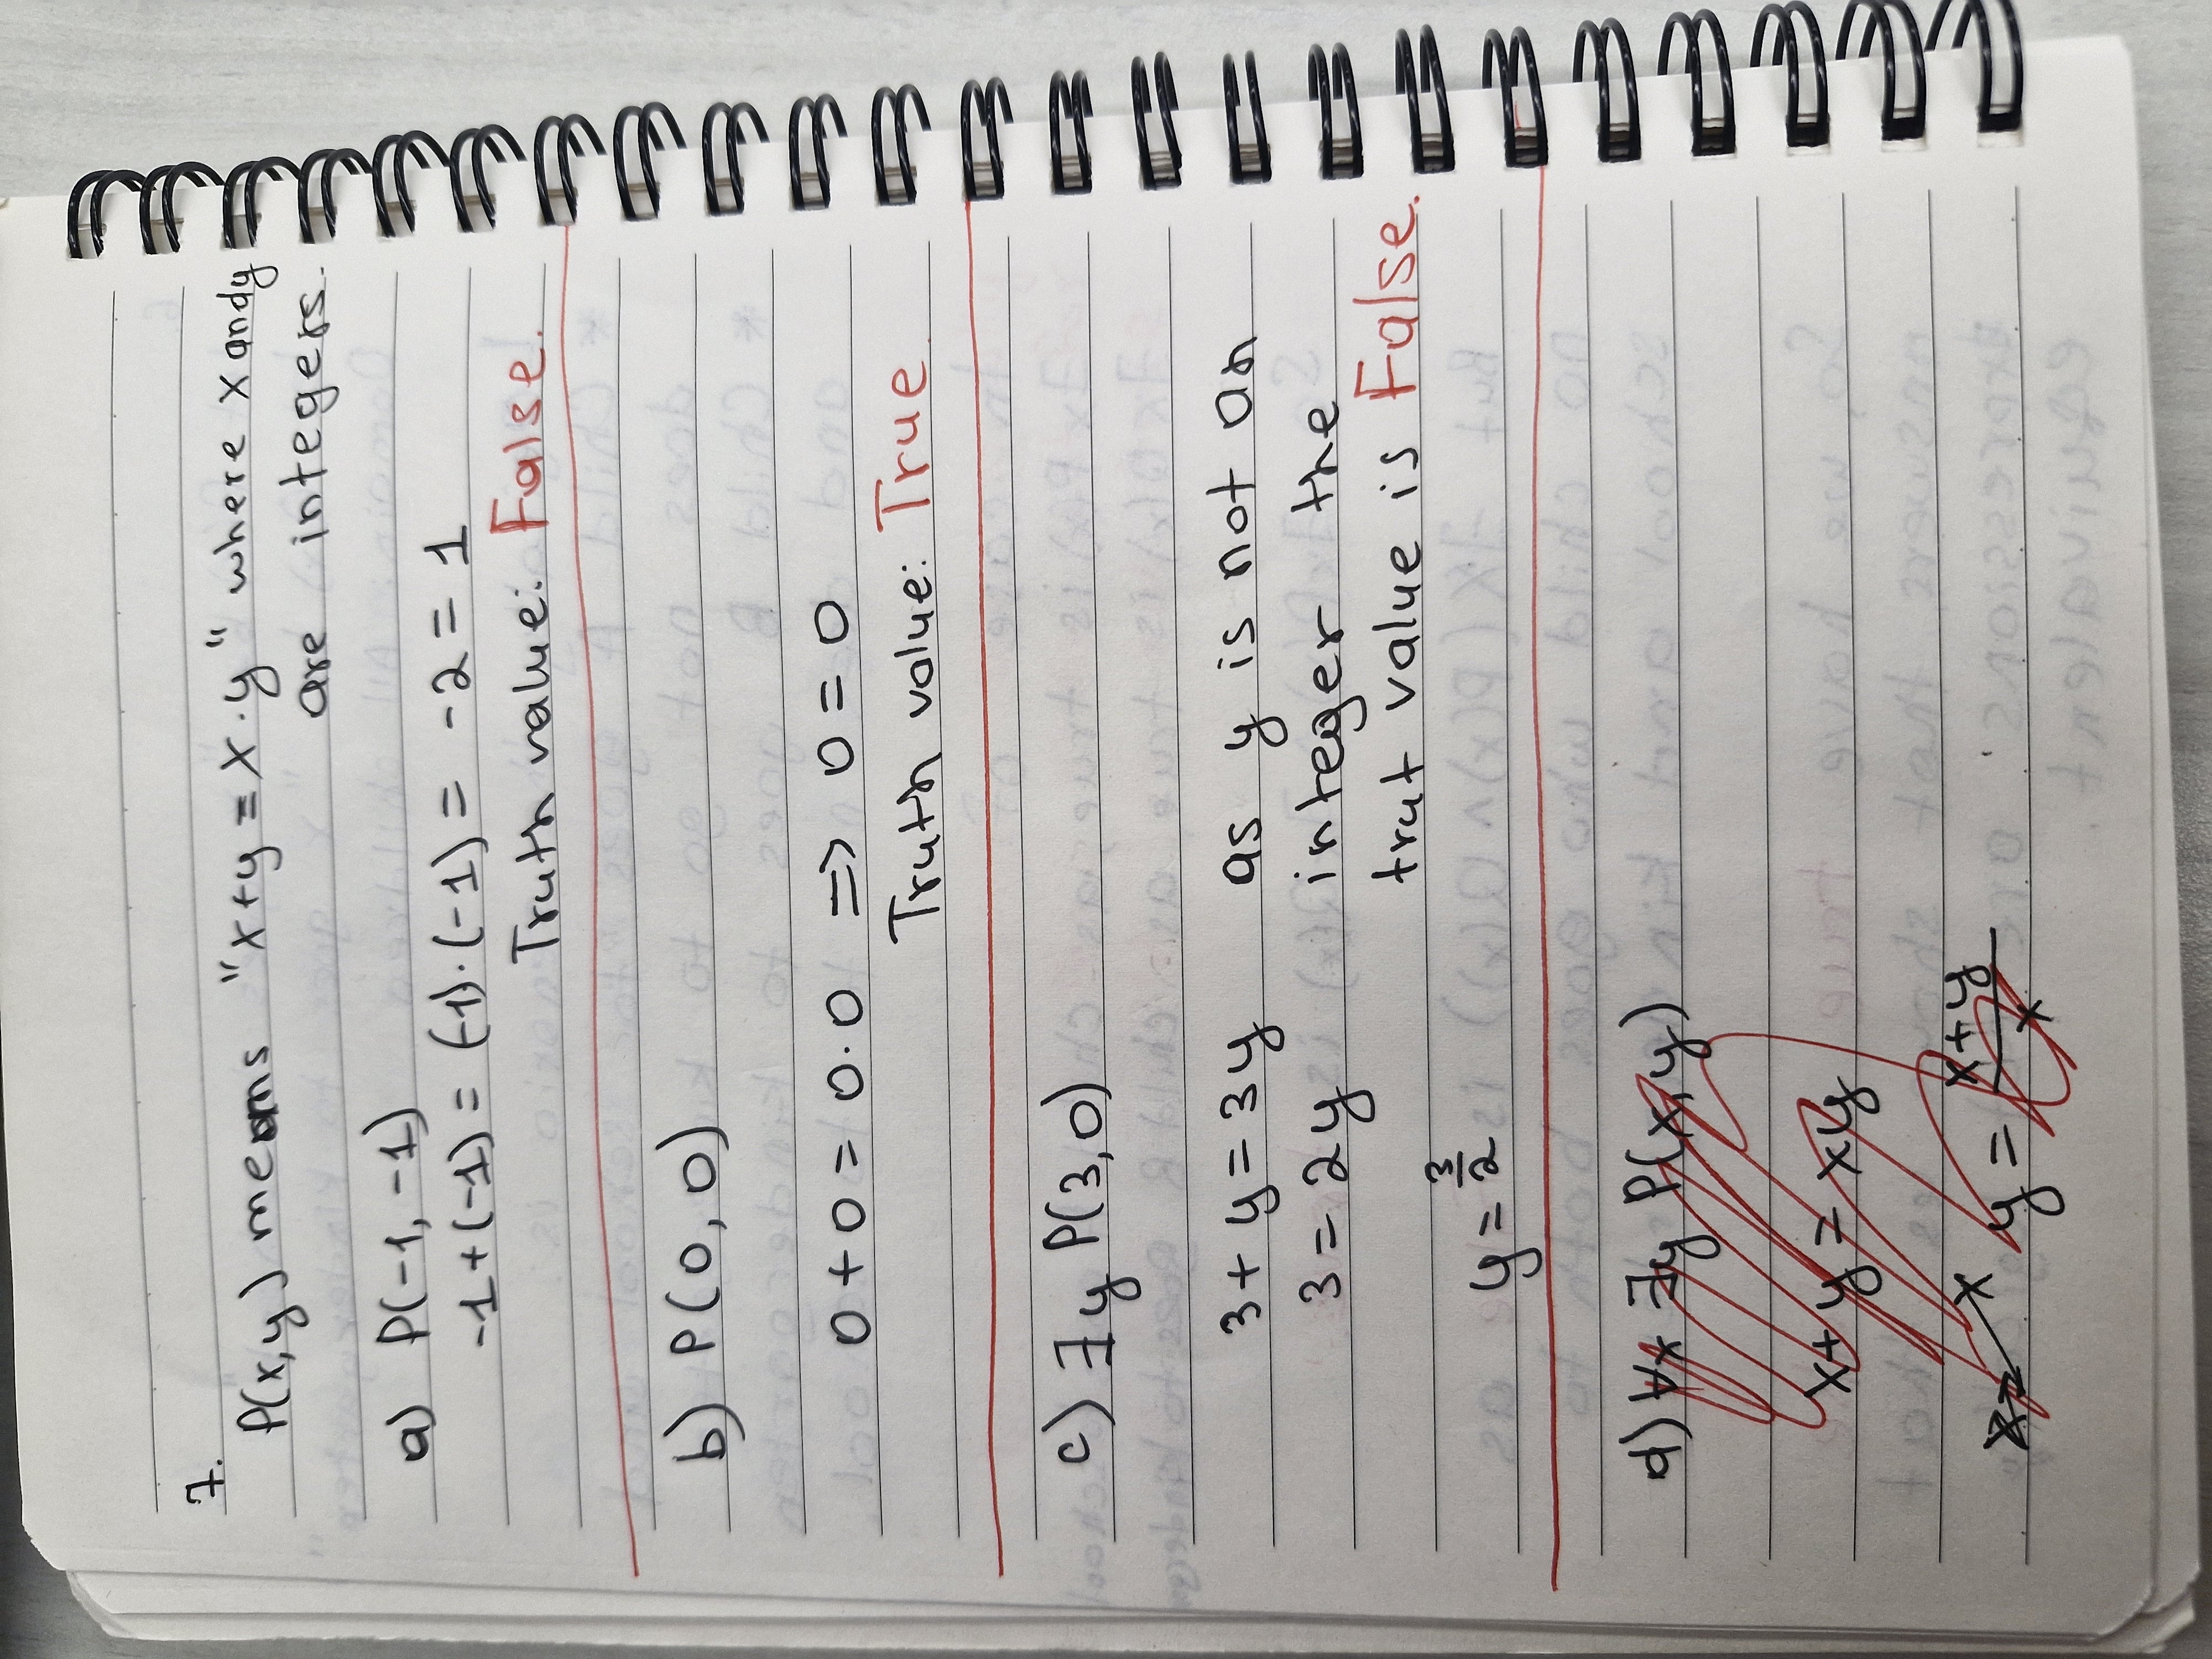 7.
P(x,y) means "x+y = x·y" where x and y
are integers.
a) P(-1, -1)
-1+(-1) = (-1)·(-1) = -2 = 1
Truth value: False.
b) P(0, 0)
0+0 = 0·0 => 0 = 0
Truth value: True.
c) ∃y P(3,0)
3+y = 3y as y is not an
3 = 2y integer the
trut value is False.
y = 3/2
d) ∀x ∃y P(x,y)
x+y = xy
y = x+y/x